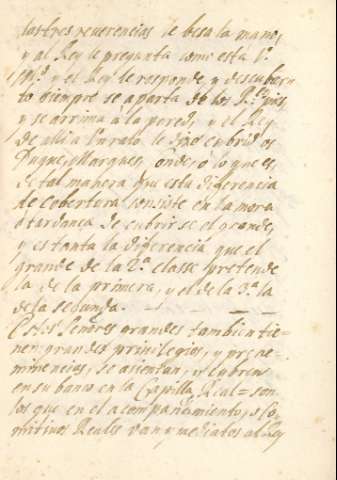 las tres reuerencias le besa la mano,
y al Rey le pregunta como está V.
Mg.d y el Rey le responde, y descubier
to siempre se aparta de los R.s pies,
y se arrima à la pared, y el Rey
de alli a un rato le dize cubrid os
Duque, Marques, Conde, o lo que es,
de tal manera que esta diferencia
de cobertura consiste en la mora
o tardança de cubrirse el grande,
y es tanta la diferencia que el
grande de la 2.a classe pretende
la de la primera, y el de la 3.a la
de la segunda.
Estos señores grandes tambien tie=
nen grandes priuilegios, y pree=
minencias, se asientan, y cubren
en su banco en la Capilla Real= son
los que en el acompañamiento, o Co,
mitiuas Reales van ymediatos al Rey